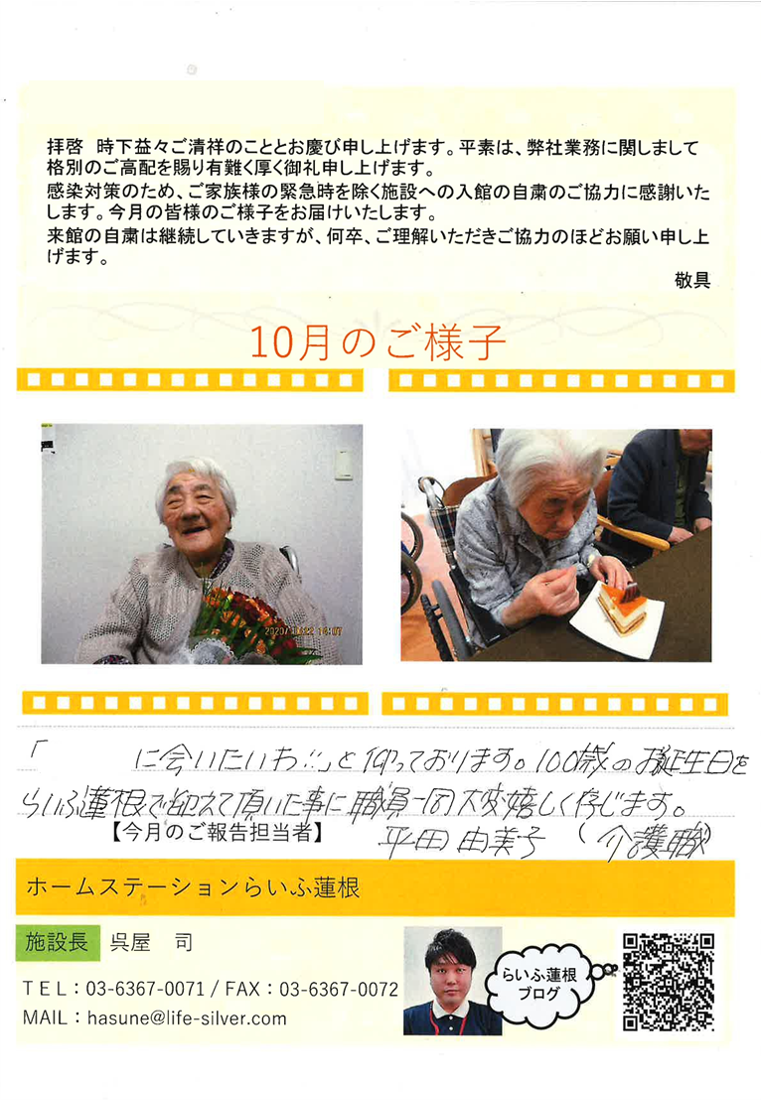 拝啓　時下益々ご清祥のこととお慶び申し上げます。平素は、弊社業務に関しまして
格別のご高配を賜り有難く厚く御礼申し上げます。
感染対策のため、ご家族様の緊急時を除く施設への入館の自粛のご協力に感謝いた
します。今月の皆様のご様子をお届けいたします。
来館の自粛は継続していきますが、何卒、ご理解いただきご協力のほどお願い申し上
げます。
敬具
10月のご様子
「　　　に会いたいわ!!」と仰っております。100歳のお誕生日を
らいふ蓮根で迎えて頂いた事に職員一同大変嬉しく存じます。
【今月のご報告担当者】　平田 由美子（介護職
ホームステーションらいふ蓮根
施設長　呉屋　司
TEL：03-6367-0071 / FAX：03-6367-0072
MAIL：hasune@life-silver.com
らいふ蓮根
ブログ